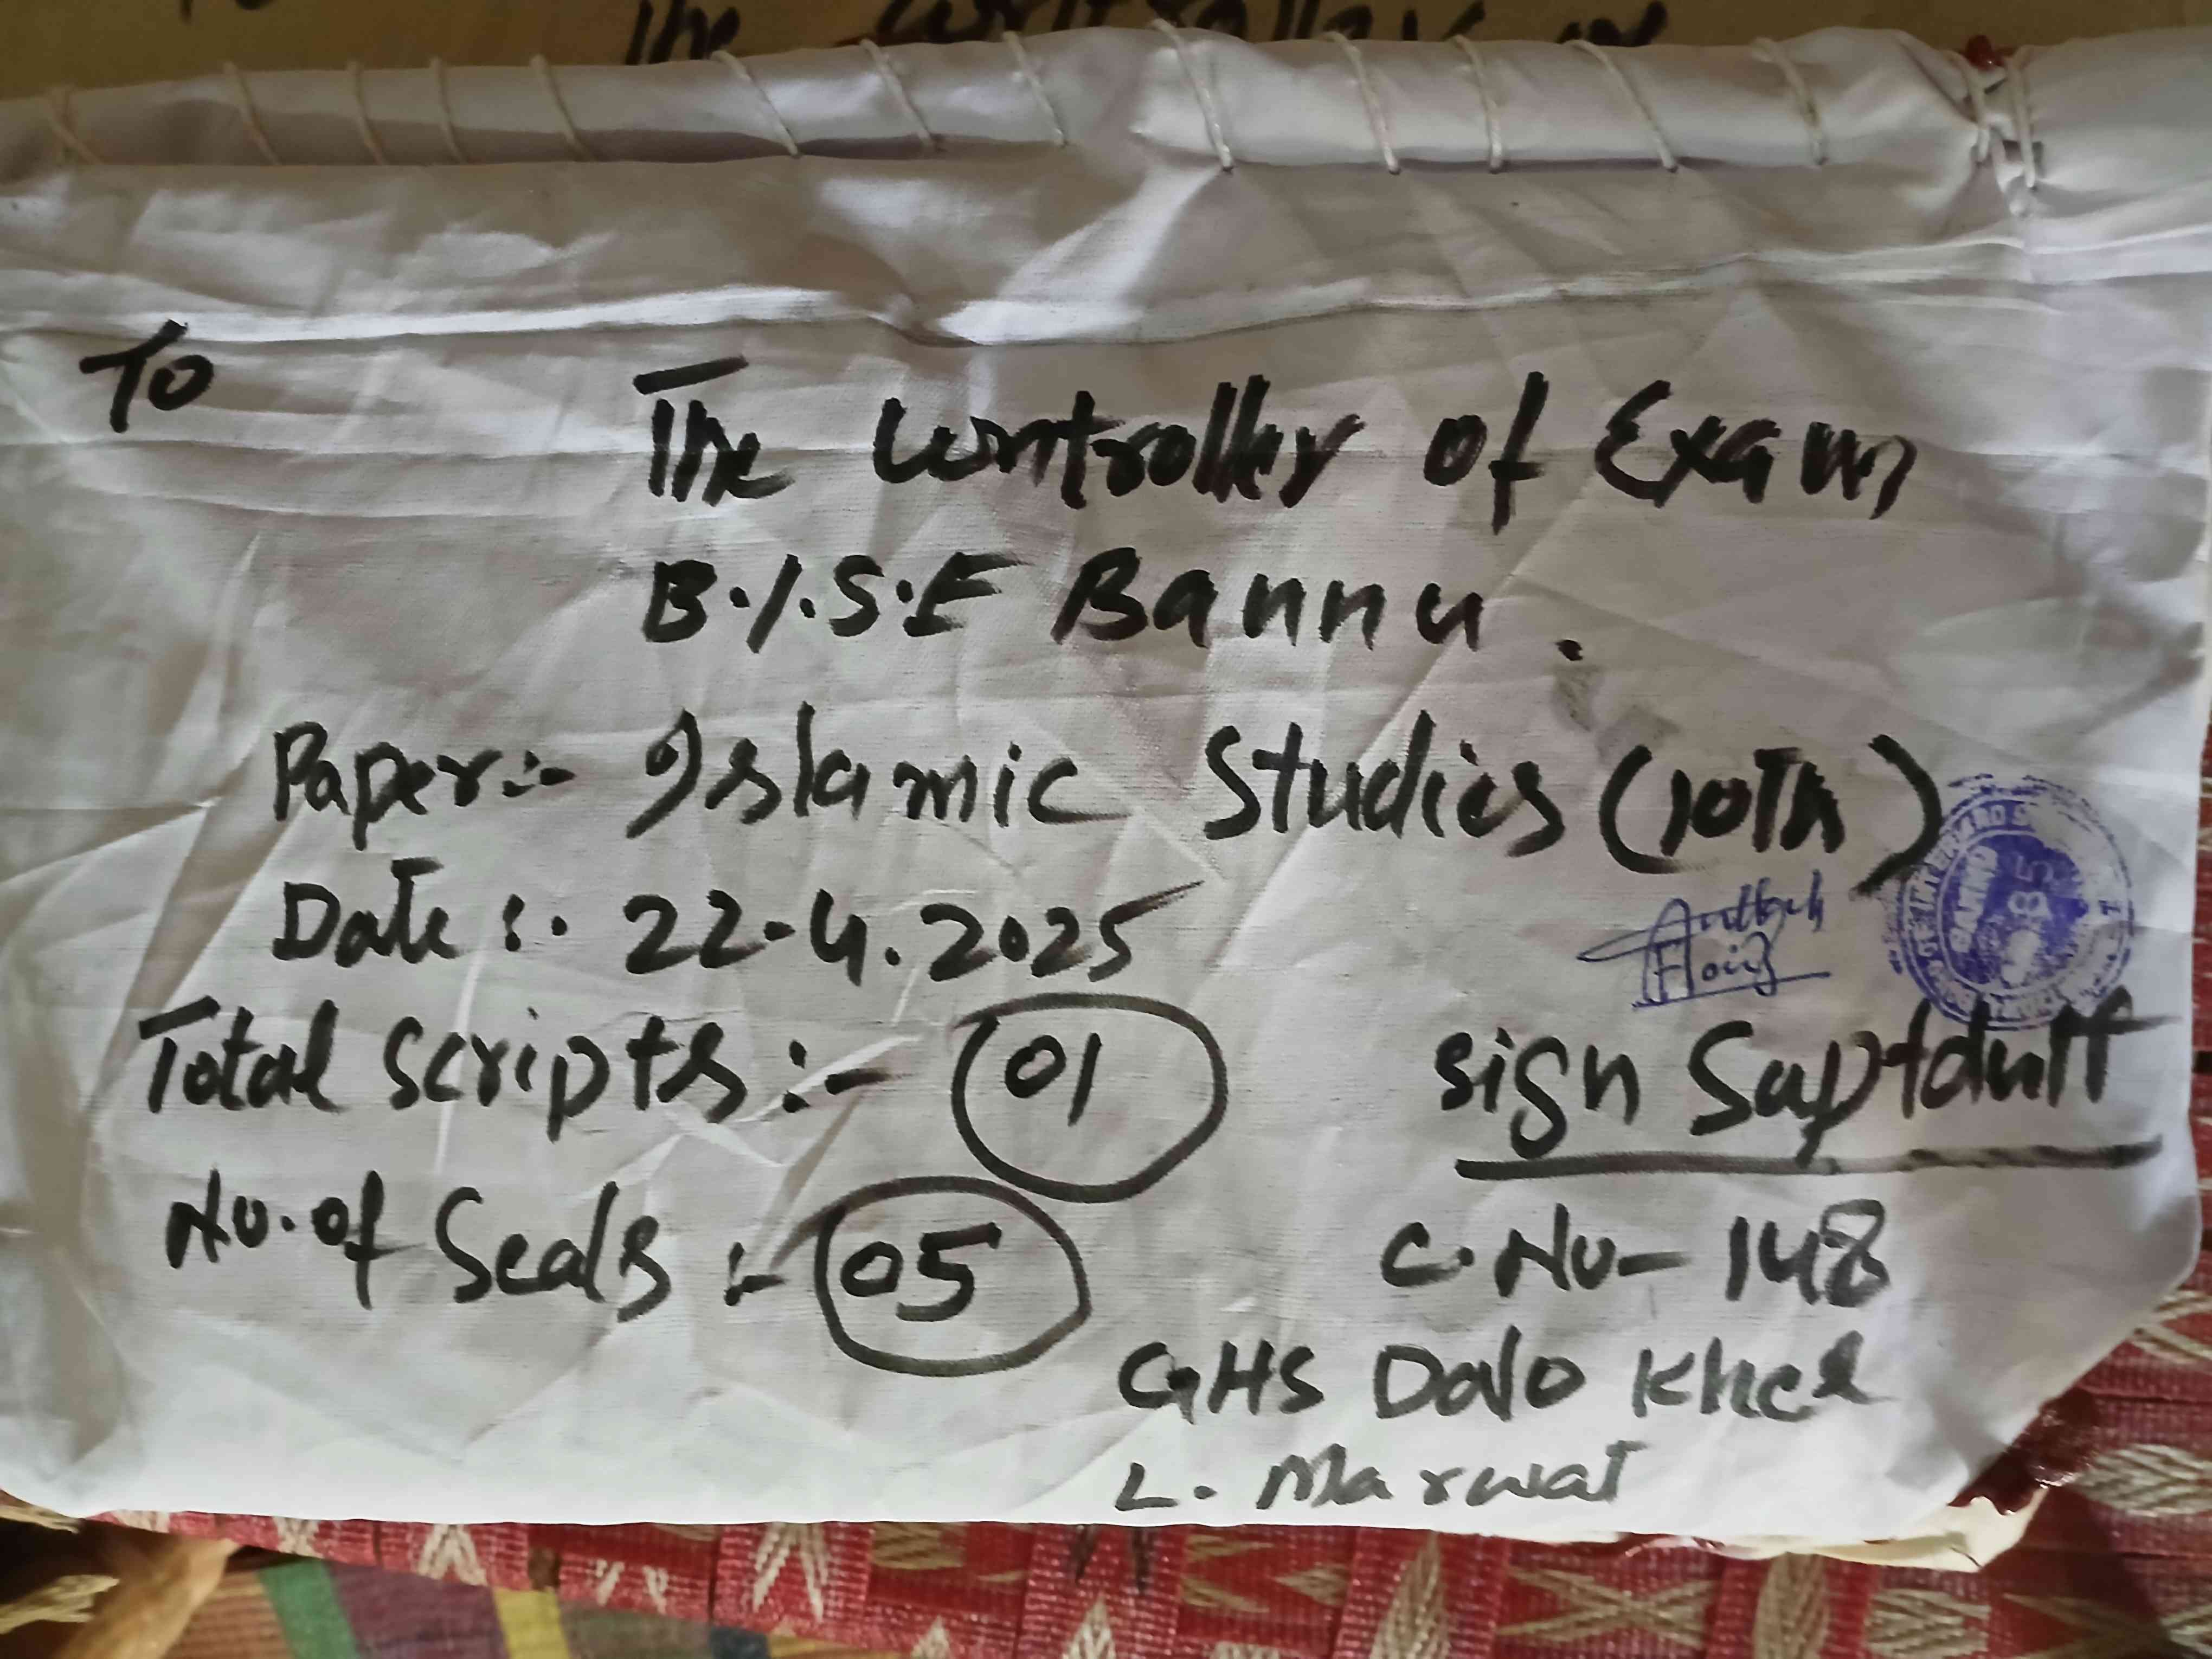 To
The Controller of Exam
B.I.S.E Bannu.
Paper:- Islamic Studies (10Th)
Date :. 22.4.2025
Total scripts :- 01
sign Suptdutt
No. of Seals :- 05
C. No - 148
GHS Dalo Khel
L. Marwat